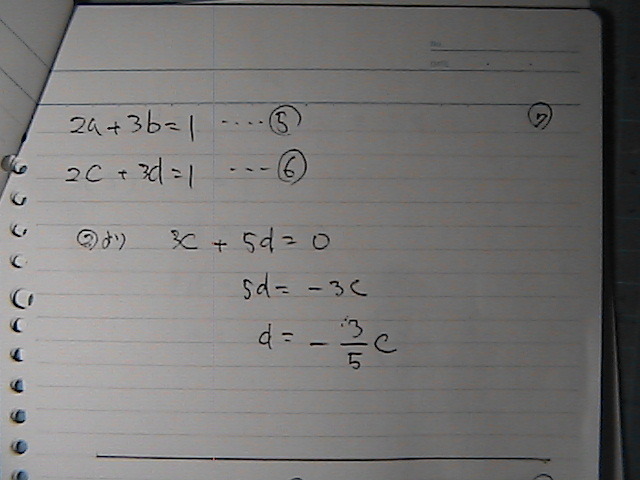 2a+3b=1 ····⑤
⑦
2c+3d=1 ···⑥
②より 3c + 5d = 0
5d = -3c
d = -3/5 c